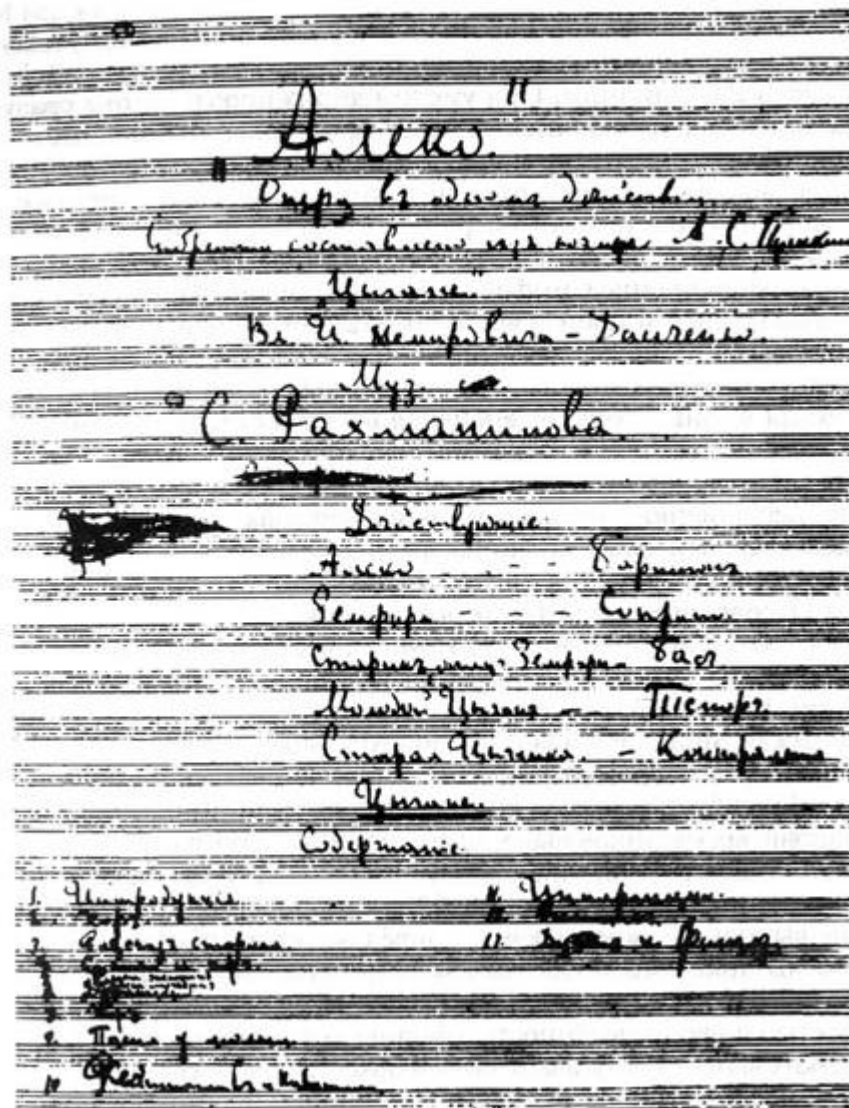 „Алеко."
Опера въ одномъ дѣйствіи
Либретто составлено изъ поэмы А. С. Пушкина
„Цыгане."
Вл. И. Немировича-Данченко.
Муз.
С. Рахманинова.
Дѣйствующіе
Алеко - - - Баритонъ
Земфира - - - Сопрано
Старикъ, отецъ Земфиры Басъ
Молодой Цыганъ - Теноръ
Старая Цыганка. - Контральто
Цыгане.
Содержаніе
1. Интродукція
2. Хоръ
3. Разсказъ старика
Хоръ
9. Пѣсня у люльки
10
11. Интермеццо
13. и Финалъ